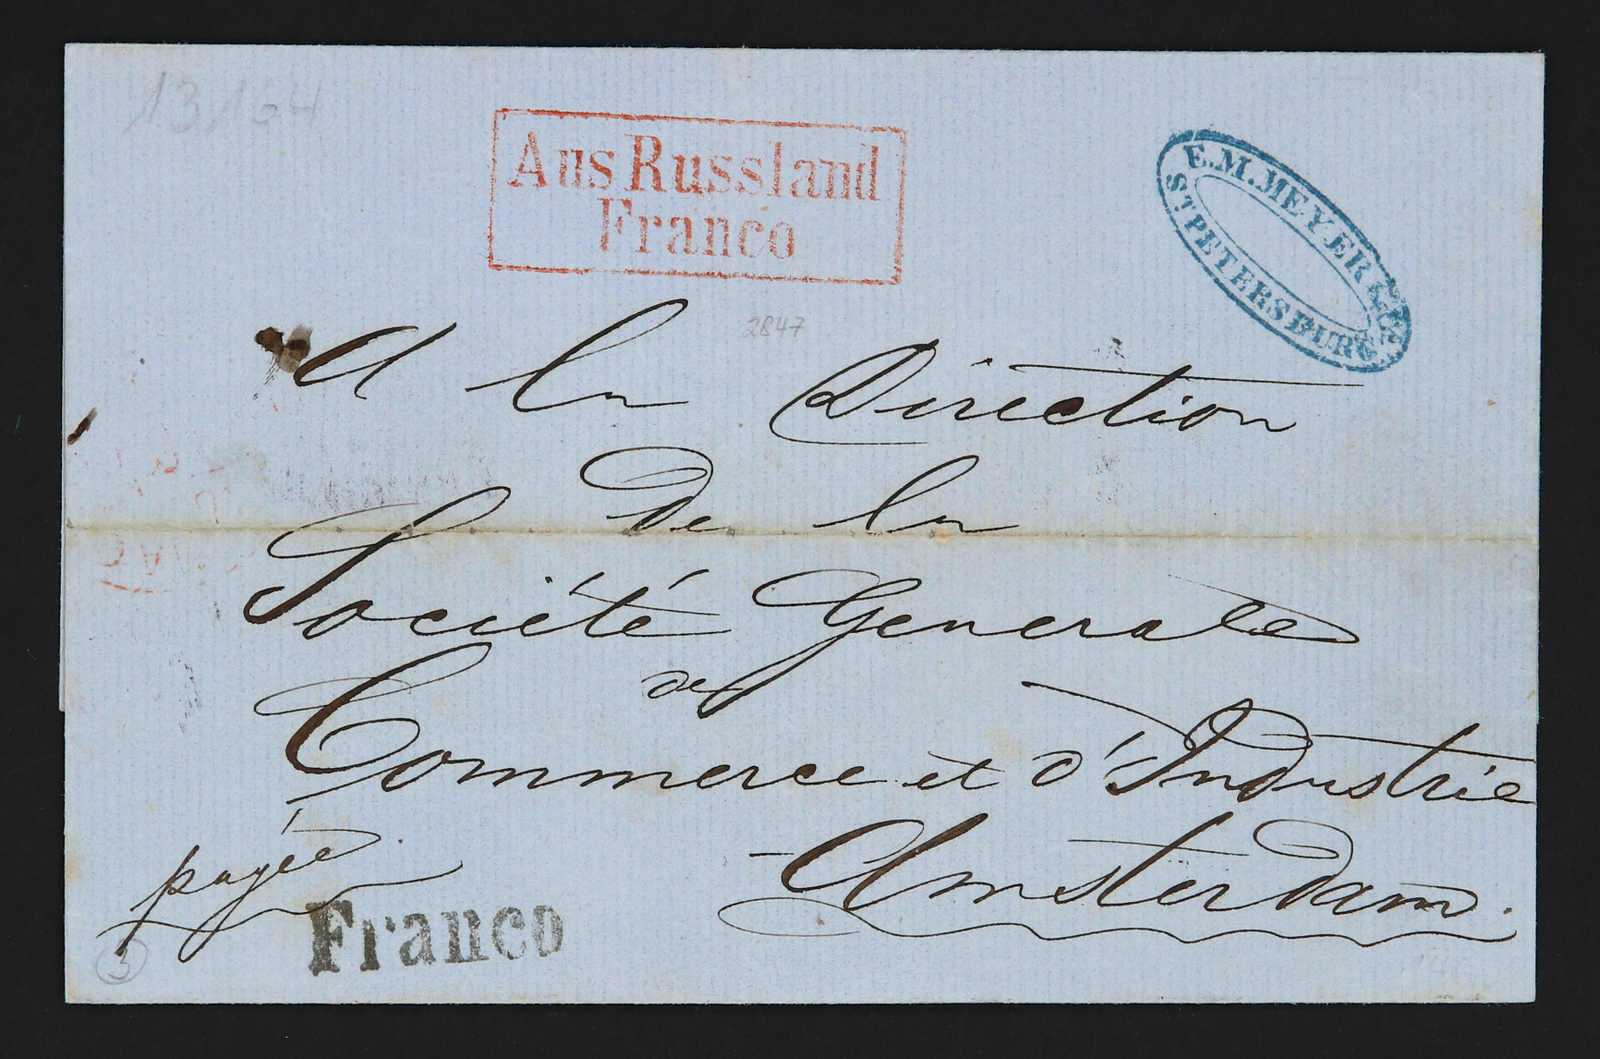 13,164
Aus Russland
Franco
E.M.MEYER & Co
ST PETERSBURG
2847
A la Direction
de la
Société Generale
de
Commerce et d'Industrie
Amsterdam.
payée.
Franco
3